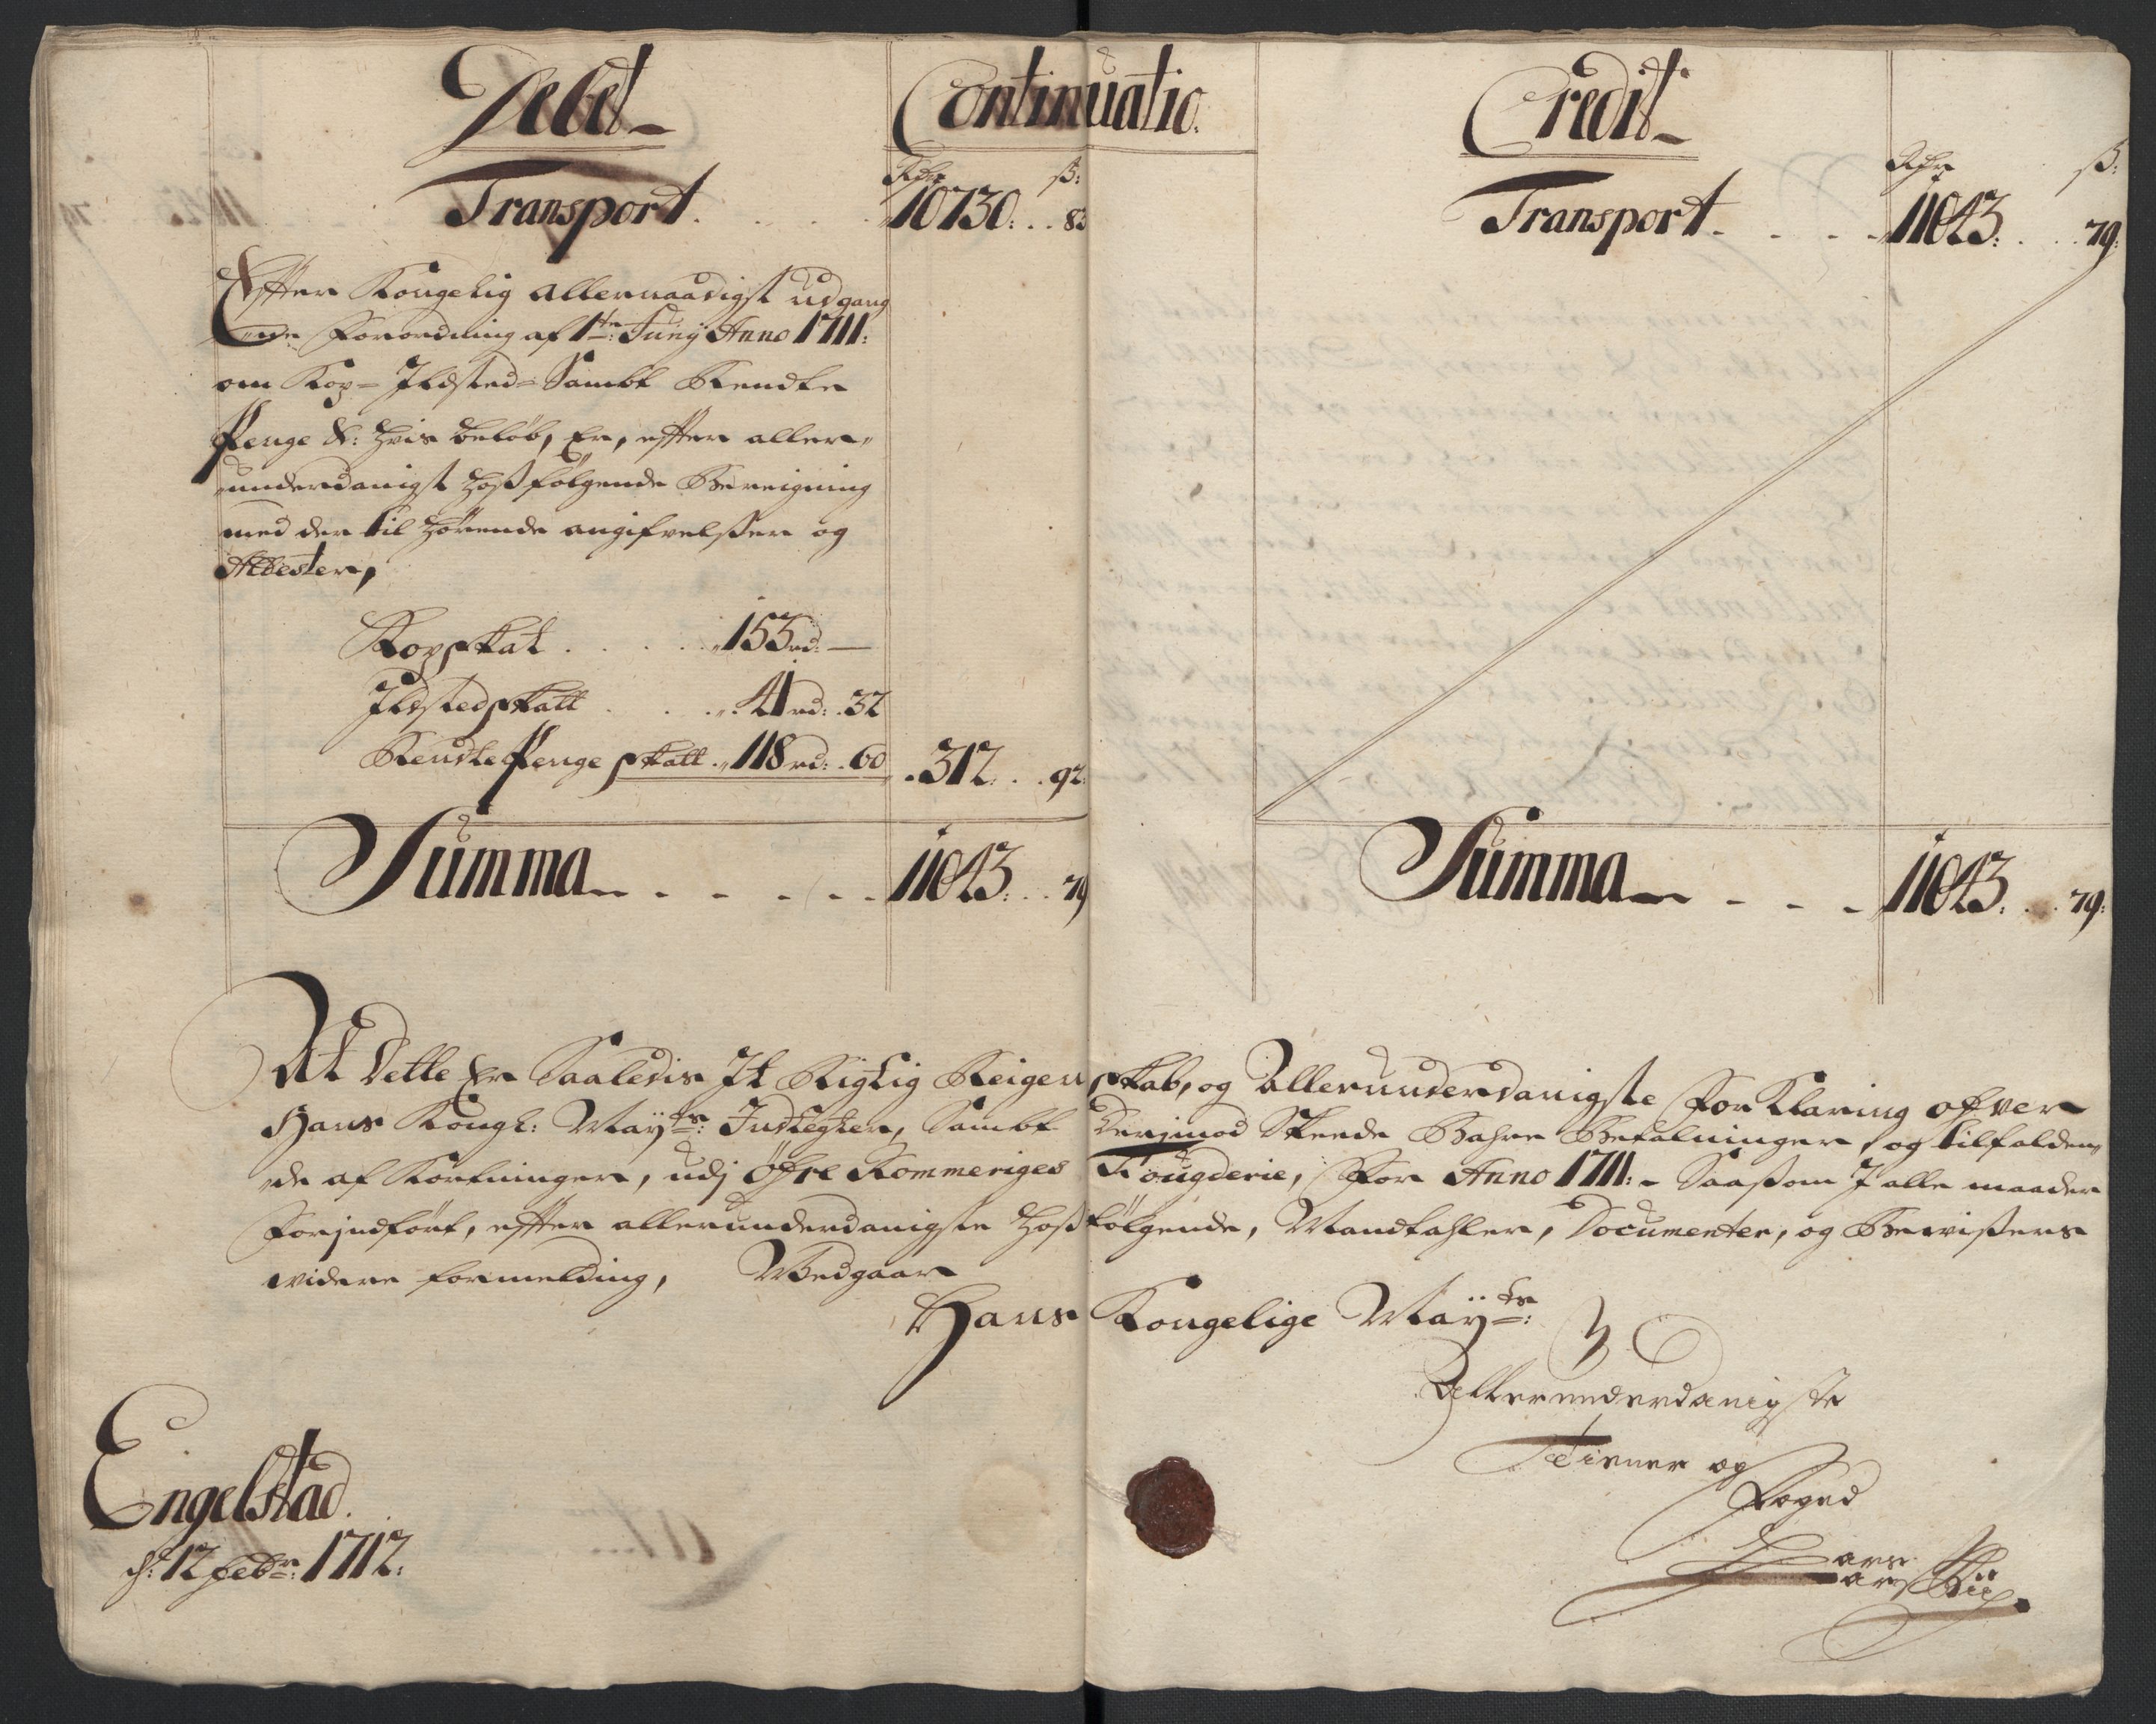 Debet
Continuatio.
Rdr ß:
Transport. 10730: .. 83
Effter Kongelig allernaadigst udgang
"ene Forordning af 1te: Junij Anno 1711:
om Kop= Ildsted= Sambt Rendte
Penge &: hvis beløb, Er, effter aller"
"underdanigst hosfølgende Beregning
med der til hørende angifvelsser og
Attester,
Kopskat . . . . 153rd: —
Ildstedskatt . . . 41rd: . 32
RendtePenge skatt . 118rd: . 60 . 312: . . 92:
Summa 11043: . . 79
Credit
Rdr ß:
Transport. 11043: . . 79:
Summa 11043: . . 79:
At Dette Er Saaledis It Rigtig Reigenskab, og Allerunderdanigste ForKlaring ofver
Hans Kongl: Mayts: Indtegter, Sambt Derjmod Skeede Bahre Betalninger, og tilfalden"
"de af Kortninger, udj Øfre Rommeriges Fougderie, For Anno 1711: - Saasom I alle maader
Forjndført, effter allerunderdanigste hosfølgende, Mandtahler, Documenter, og Bewisers
widere formelding, Wedgaar
Hans Kongelige Mayts:
Allerunderdanigste
Tienner og
Foged
Engelstad.
d: 12 Febr: 1712: